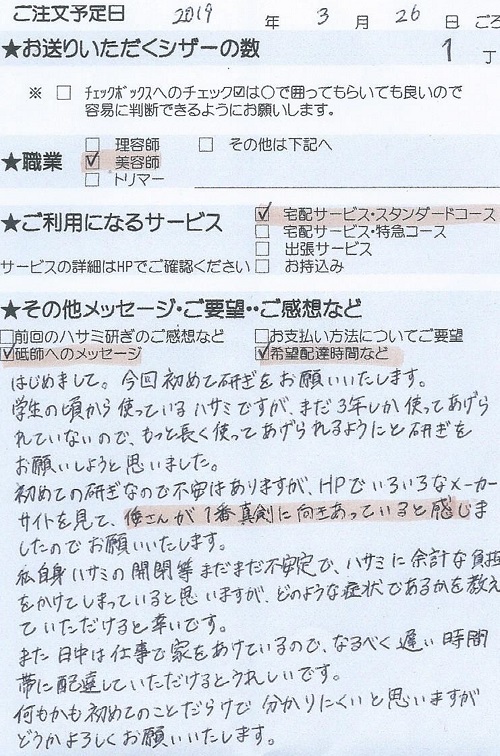 ご注文予定日 2019 年 3 月 26 日 ごろ
★お送りいただくシザーの数 1 丁
※ □ ﾁｪｯｸﾎﾞｯｸｽへのチェック☑は○で囲ってもらいても良いので
容易に判断できるようにお願いします。
□ 理容師 □ その他は下記へ
★職業 ☑ 美容師
□ トリマー
☑ 宅配サービス・スタンダードコース
★ご利用になるサービス □ 宅配サービス・特急コース
□ 出張サービス
サービスの詳細はHPでご確認ください □ お持込み
★その他メッセージ・ご要望・・ご感想など
□前回のハサミ研ぎのご感想など □お支払い方法についてご要望
☑砥師へのメッセージ ☑希望配達時間など
はじめまして。今回初めて研ぎをお願いいたします。
学生の頃から使っているハサミですが、まだ3年しか使ってあげら
れていないので、もっと長く使ってあげられるようにと研ぎを
お願いしようと思いました。
初めての研ぎなので不安はありますが、HPでいろいろなメーカー
サイトを見て、俊さんが1番真剣に向きあっていると感じま
したのでお願いいたします。
私自身ハサミの開閉等まだまだ不安定で、ハサミに余計な負担
をかけてしまっていると思いますが、どのような症状であるかを教え
ていただけると幸いです。
また日中は仕事で家をあけているので、なるべく遅い時間
帯に配達していただけるとうれしいです。
何もかも初めてのことだらけで分かりにくいと思いますが
どうかよろしくお願いいたします。